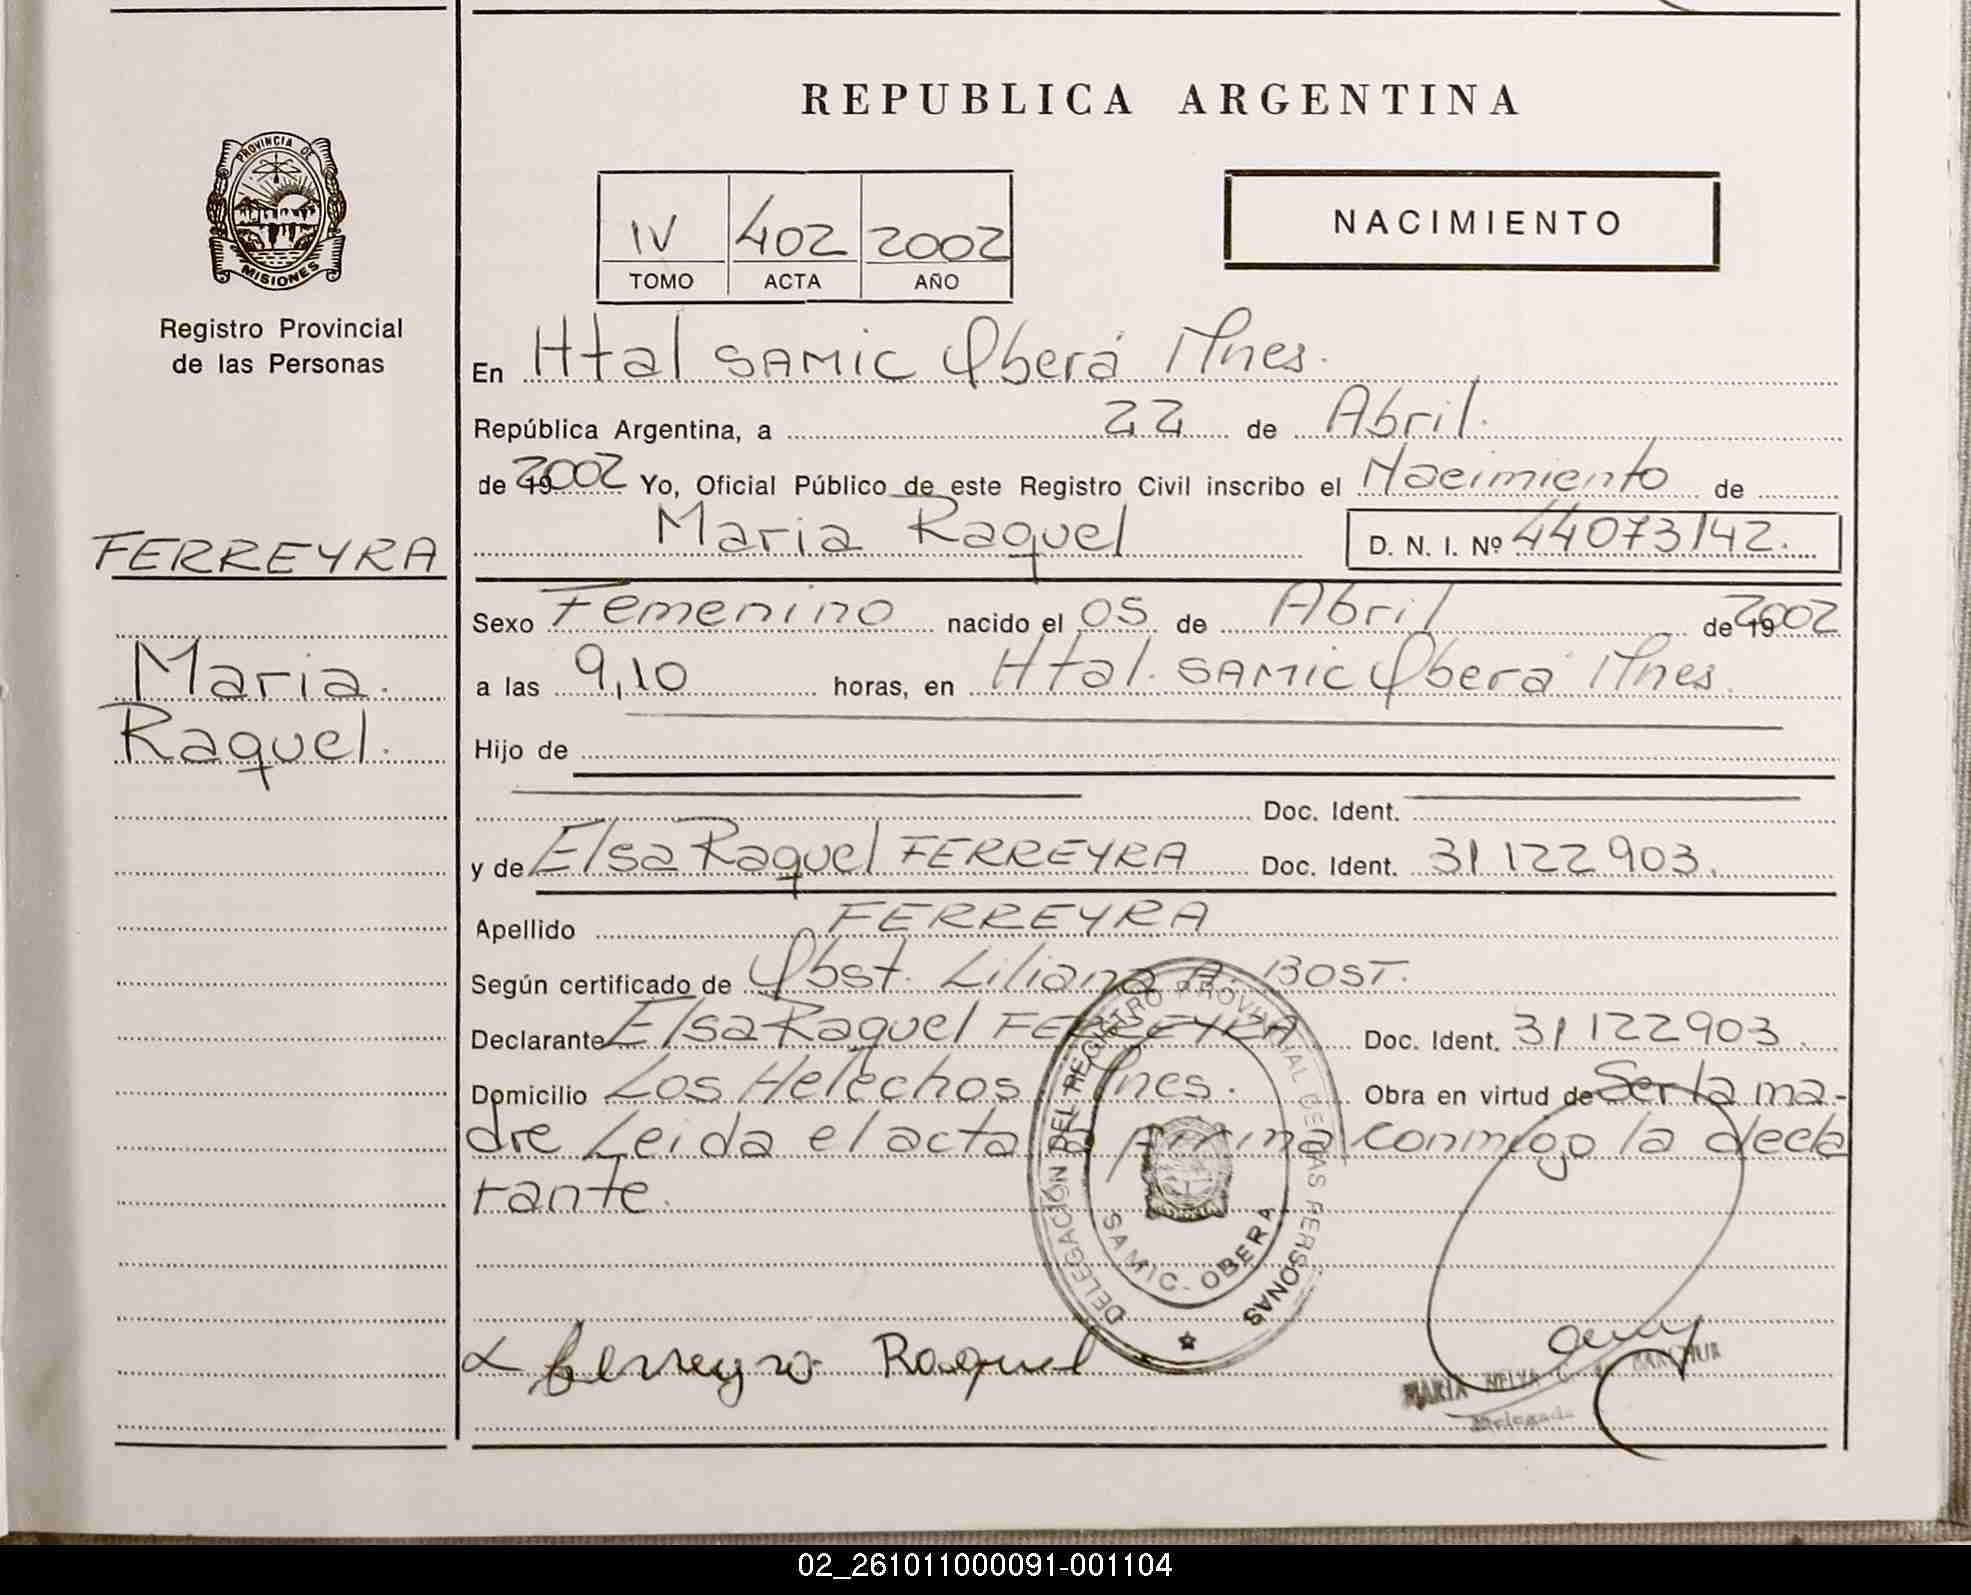 REPUBLICA ARGENTINA
PROVINCIA DE
MISIONES
Registro Provincial
de las Personas
IV 402 2002
TOMO ACTA AÑO
NACIMIENTO
En Htal SAMIC Oberá Mnes.
República Argentina, a 22 de Abril.
de 19 2002 Yo, Oficial Público de este Registro Civil inscribo el Nacimiento de
Maria Raquel D. N. I. Nº 44073142.
FERREYRA
Maria.
Raquel.
Sexo Femenino nacido el 05 de Abril de 19 2002
a las 9,10 horas, en Htal. SAMIC Oberá Mnes.
Hijo de
Doc. Ident.
y de Elsa Raquel FERREYRA Doc. Ident. 31122903.
Apellido FERREYRA
Según certificado de Obst. Liliana B. BOST.
Declarante Elsa Raquel FERREYRA Doc. Ident. 31122903.
Domicilio Los Helechos Mnes. Obra en virtud de Ser la ma-
dre Leida el acta la firma conmigo la decla
rante.
DELEGACIÓN DEL REGISTRO PROVINCIAL DE LAS PERSONAS
SAMIC - OBERA
Ferreyra Raquel
MARIA NELVA
Delegada
02_261011000091-001104